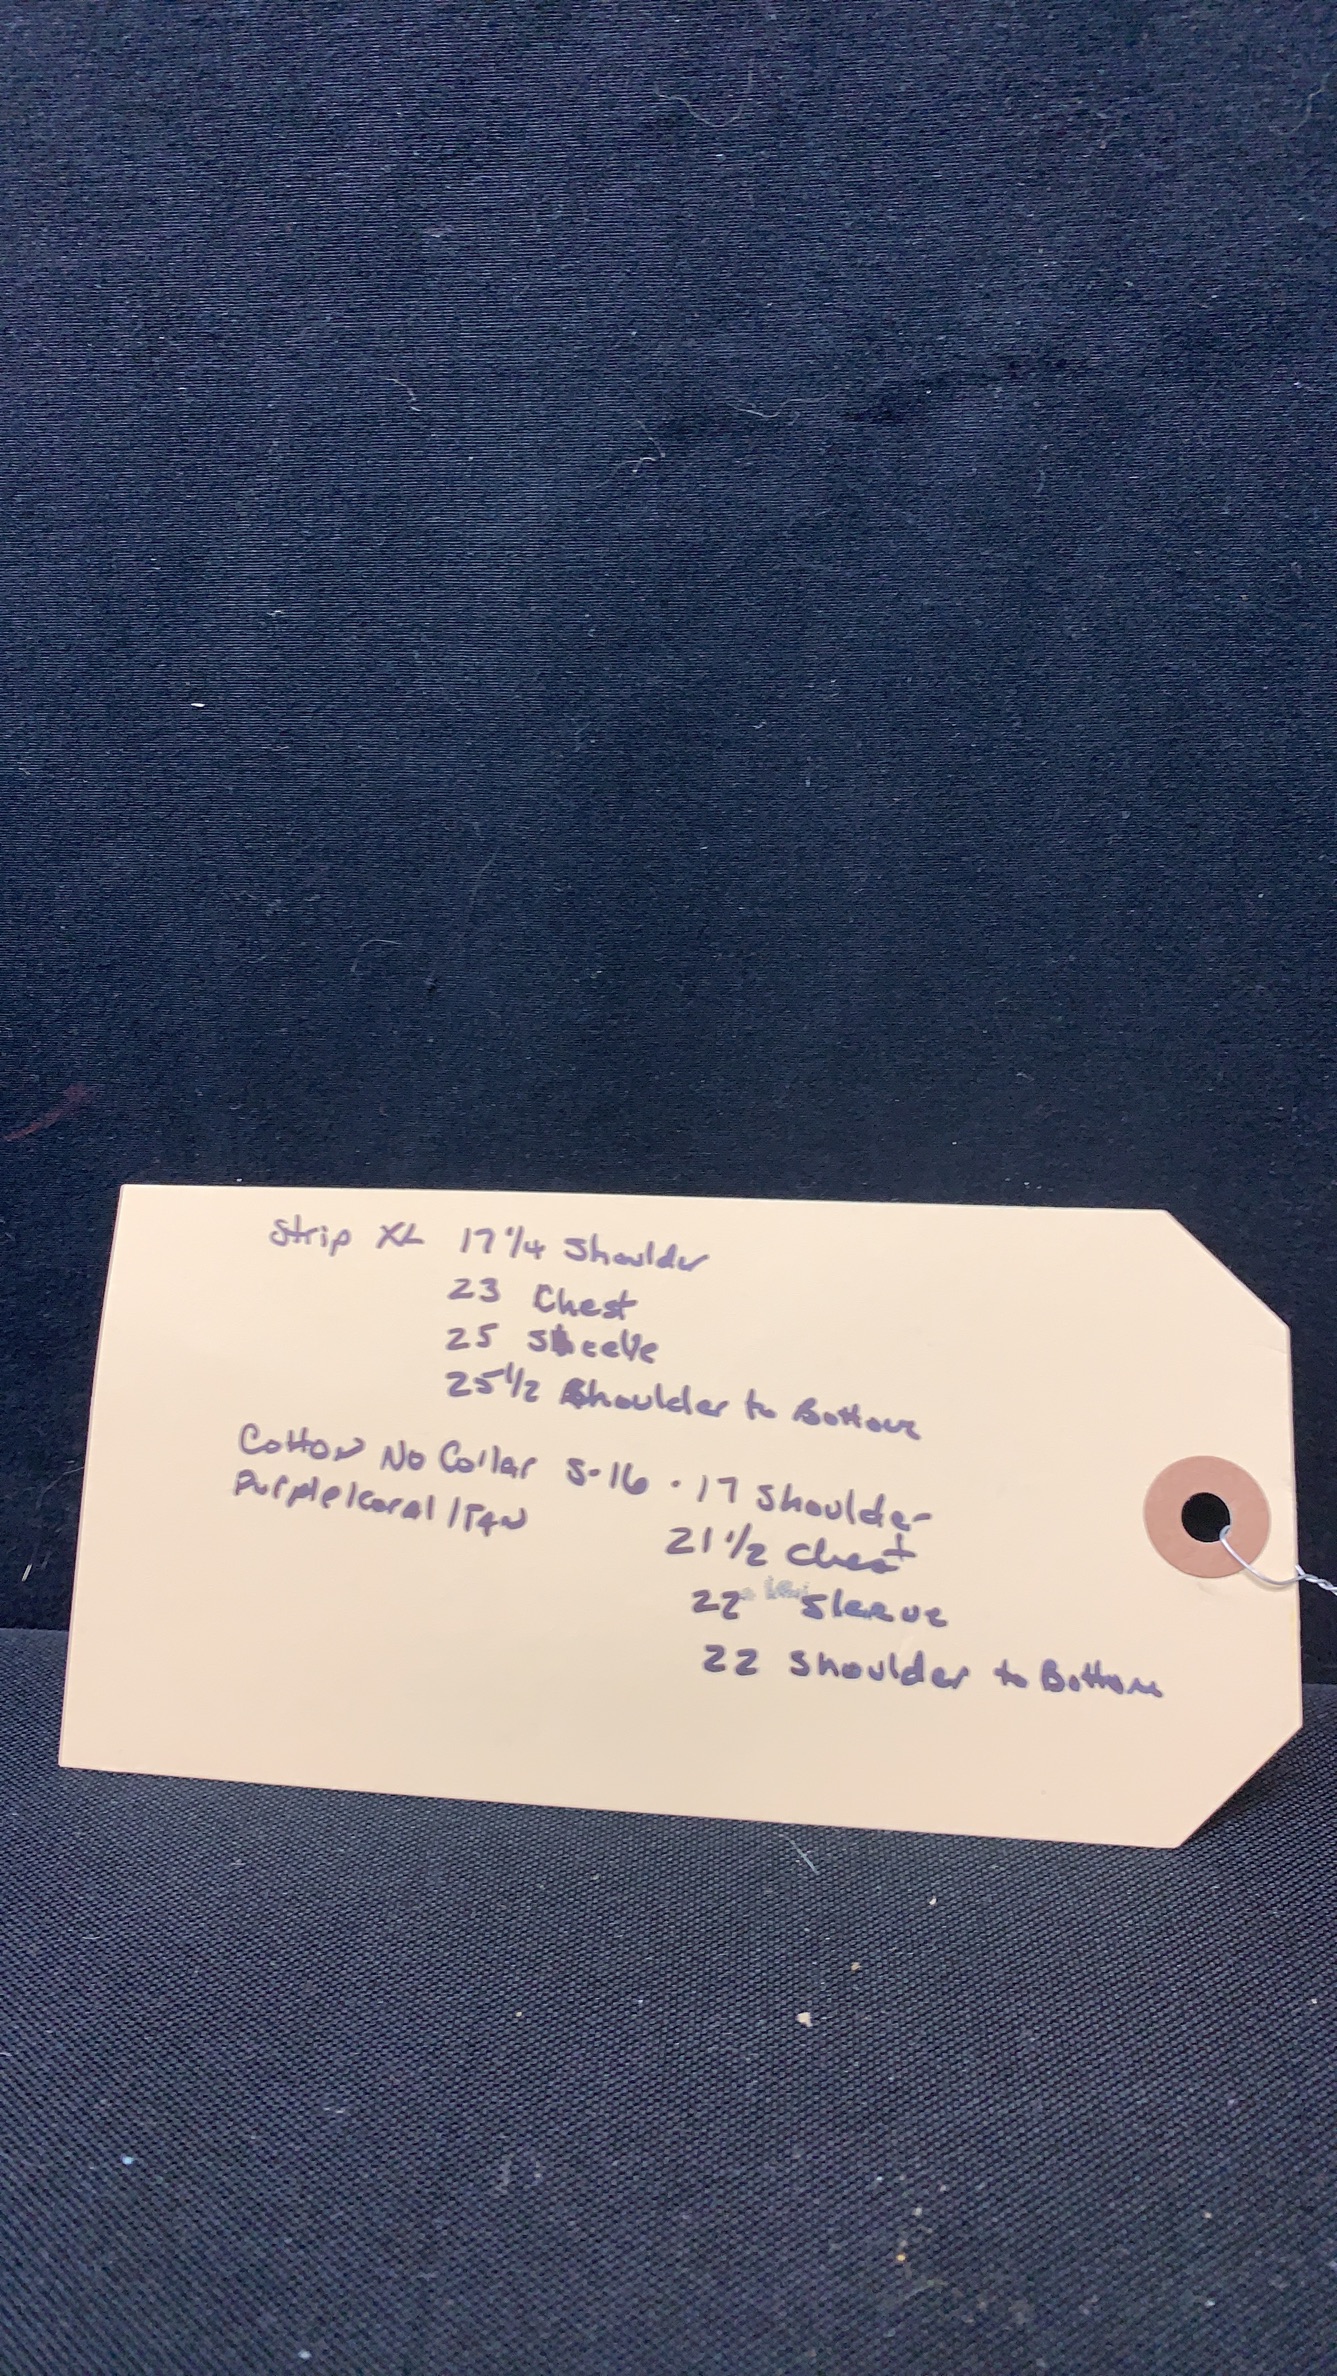 Strip XL 17 1/4 Shoulder
23 Chest
25 Sleeve
25 1/2 Shoulder to Bottom
Cotton No Collar S-16 - 17 Shoulder
Purple/Coral/TAN
21 1/2 Chest
22 Sleeve
22 Shoulder to Bottom